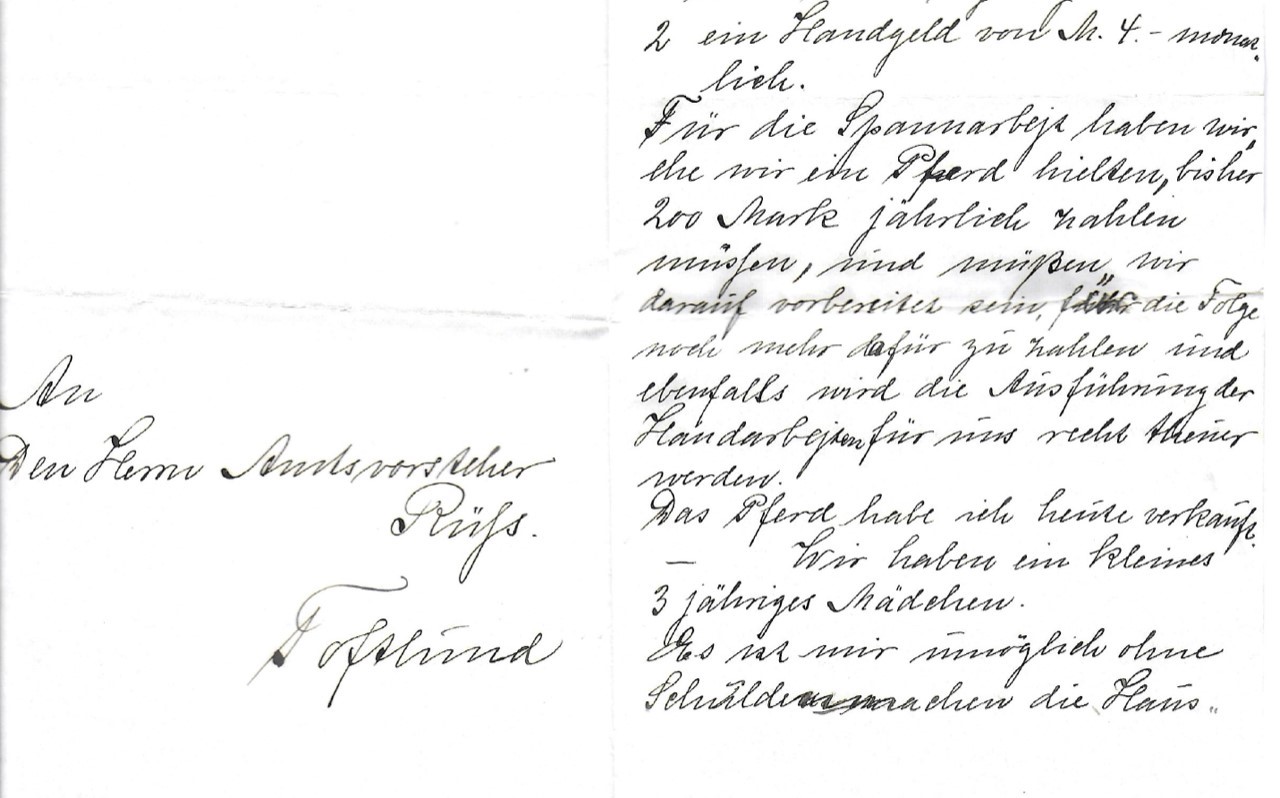 An
Den Herrn Amtsvorsteher
Rüß.
Toftlund
2 ein Handgeld von M. 4.- monat-
lich.
Für die Spannarbeit haben wir,
ehe wir ein Pferd hielten, bisher
200 Mark jährlich zahlen
müssen, und müßen wir
darauf vorbereitet sein, für die Folge
noch mehr dafür zu zahlen und
ebenfalls wird die Ausführung der
Handarbeiten für uns recht theuer
werden.
Das Pferd habe ich heute verkauft.
— Wir haben ein kleines
3 jähriges Mädchen.
Es ist mir unmöglich ohne
Schulden machen die Haus-